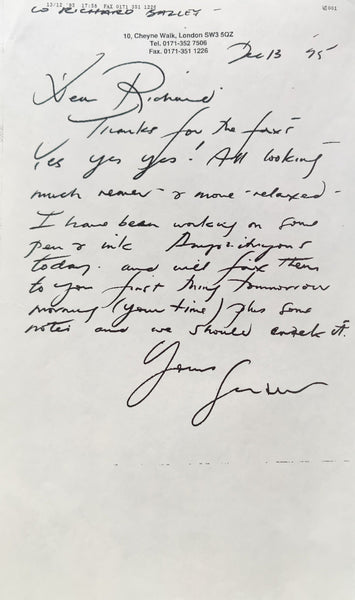 13/12 '95 17:56 FAX 0171 351 1226
001
TO RICHARD BAZLEY
10, Cheyne Walk, London SW3 5QZ
Tel. 0171-352 7506
Fax. 0171-351 1226
Dec 13 '95
Dear Richard
Thanks for the faxs
Yes yes yes! All looking
much newer & more relaxed -
I have been working on some
pen & ink
today. and will fax them
to you first thing tomorrow
morning (your time) plus some
notes and we should crack it.
Yours